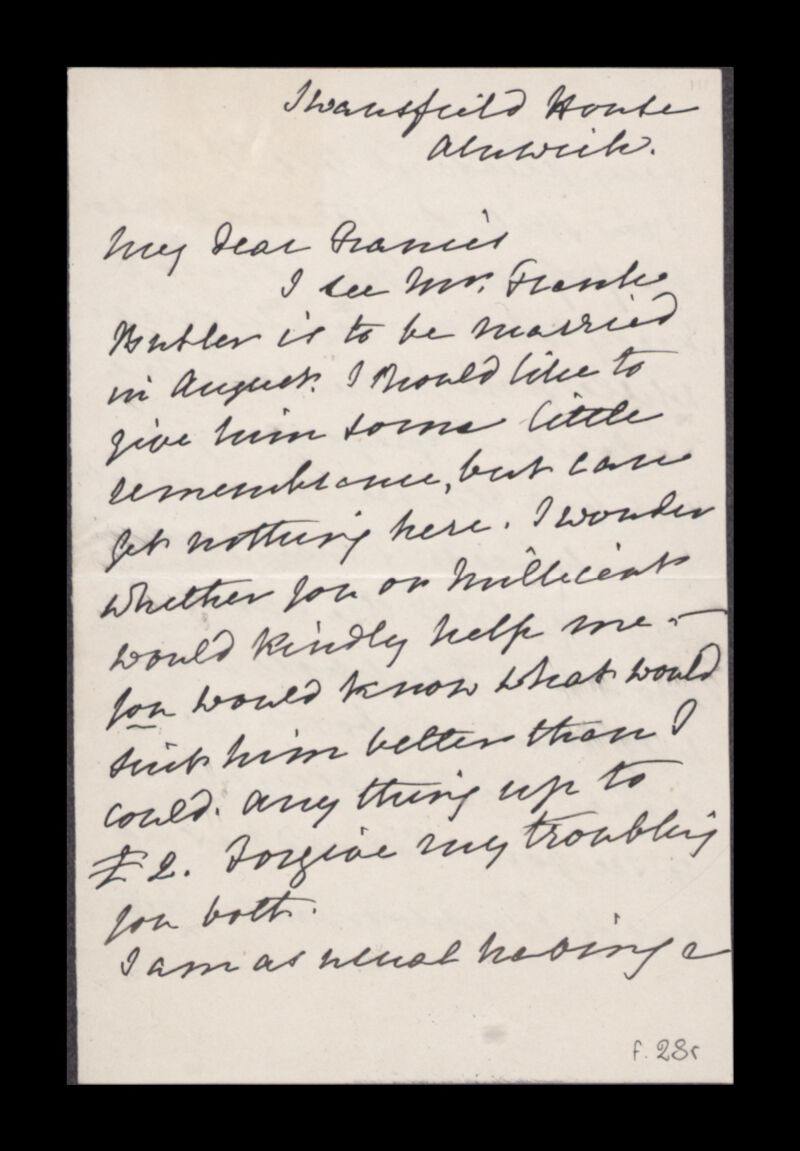 Swansfield House
Alnwick.
My dear Francis
I see Mr. Frank
Butler is to be married
in August. I should like to
give him some little
remembrance, but can
get nothing here. I wonder
whether you or Millicent
would kindly help me –
you would know what would
suit him better than I
could. Any thing up to
£2. Forgive my troubling
you both.
I am as usual having a
f. 28r